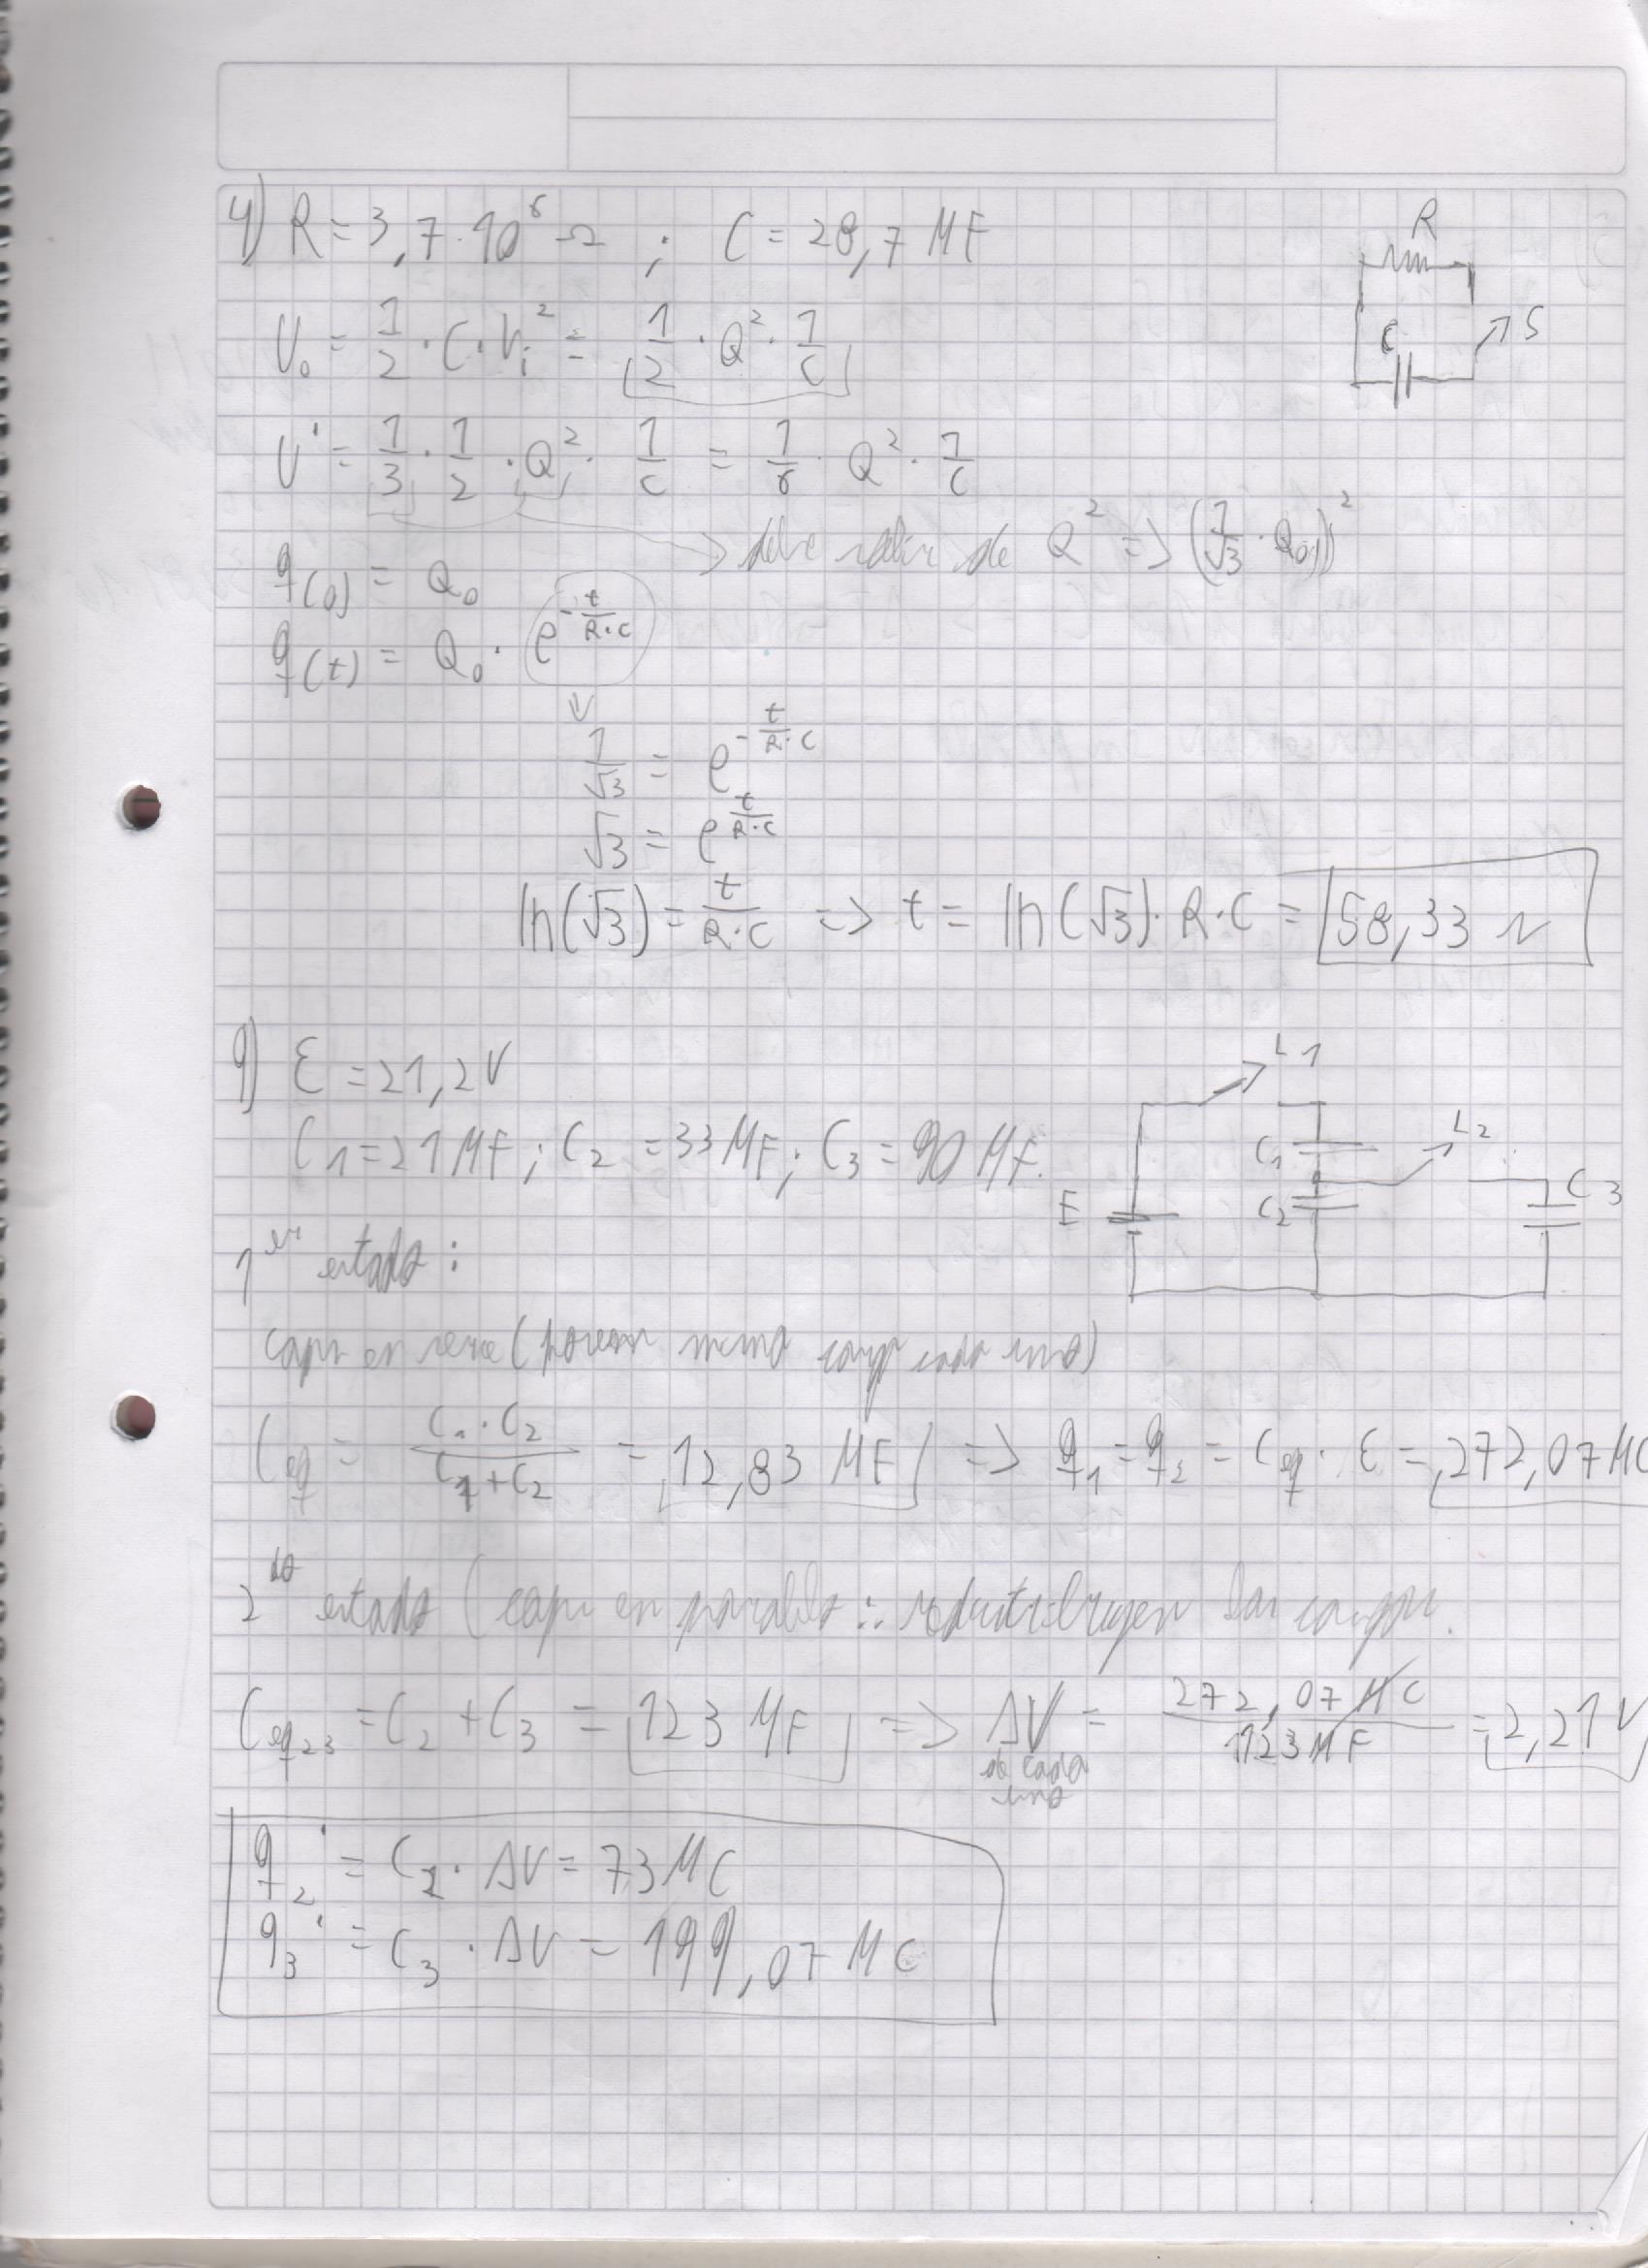 4) R = 3,7·10⁶ Ω ; C = 28,7 MF
R
C
S
U₀ = 1/2 · C · Vi² = 1/2 · Q² · 1/C
U' = 1/3 · 1/2 · Q² · 1/C = 1/6 · Q² · 1/C
→ debe salir de Q² => (1/√3 · Q₀)²
q(0) = Q₀
q(t) = Q₀ · e^(-t/R·C)
1/√3 = e^(-t/R·C)
√3 = e^(t/R·C)
ln(√3) = t/R·C => t = ln(√3) · R·C = 58,33 s
9) ε = 21,2 V
C1 = 21 MF ; C2 = 33 MF ; C3 = 90 MF.
L1
L2
C1
C2
C3
E
1er estado:
caps en serie (poseen misma carga cada uno)
Ceq = C1·C2 / C1+C2 = 12,83 MF => q1 = q2 = Ceq · ε = 272,07 MC
2do estado (caps en paralelo ∴ redistribuyen las cargas.
Ceq23 = C2 + C3 = 123 MF => ΔV = 272,07 MC / 123 MF = 2,21 V
de cada
uno
q2' = C2 · ΔV = 73 MC
q3' = C3 · ΔV = 199,07 MC